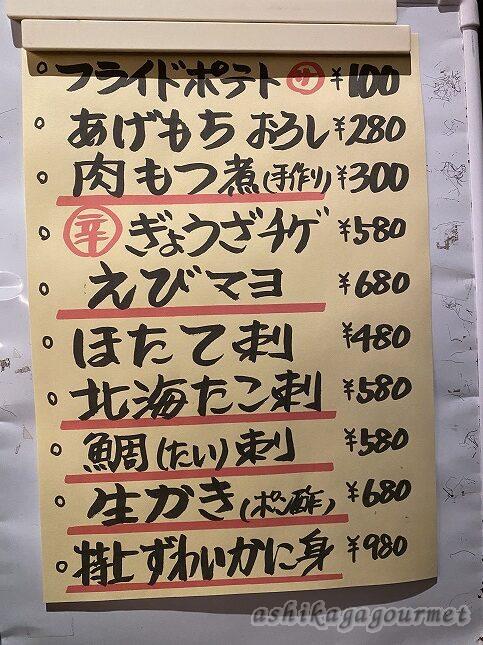 フライドポテト サ ¥100
あげもち おろし ¥280
肉もつ煮(手作り) ¥300
辛 ぎょうざチゲ ¥580
えびマヨ ¥680
ほたて刺 ¥480
北海たこ刺 ¥580
鯛(たい)刺 ¥580
生がき(ポン酢) ¥680
特上ずわいかに身 ¥980
ashikagagourmet